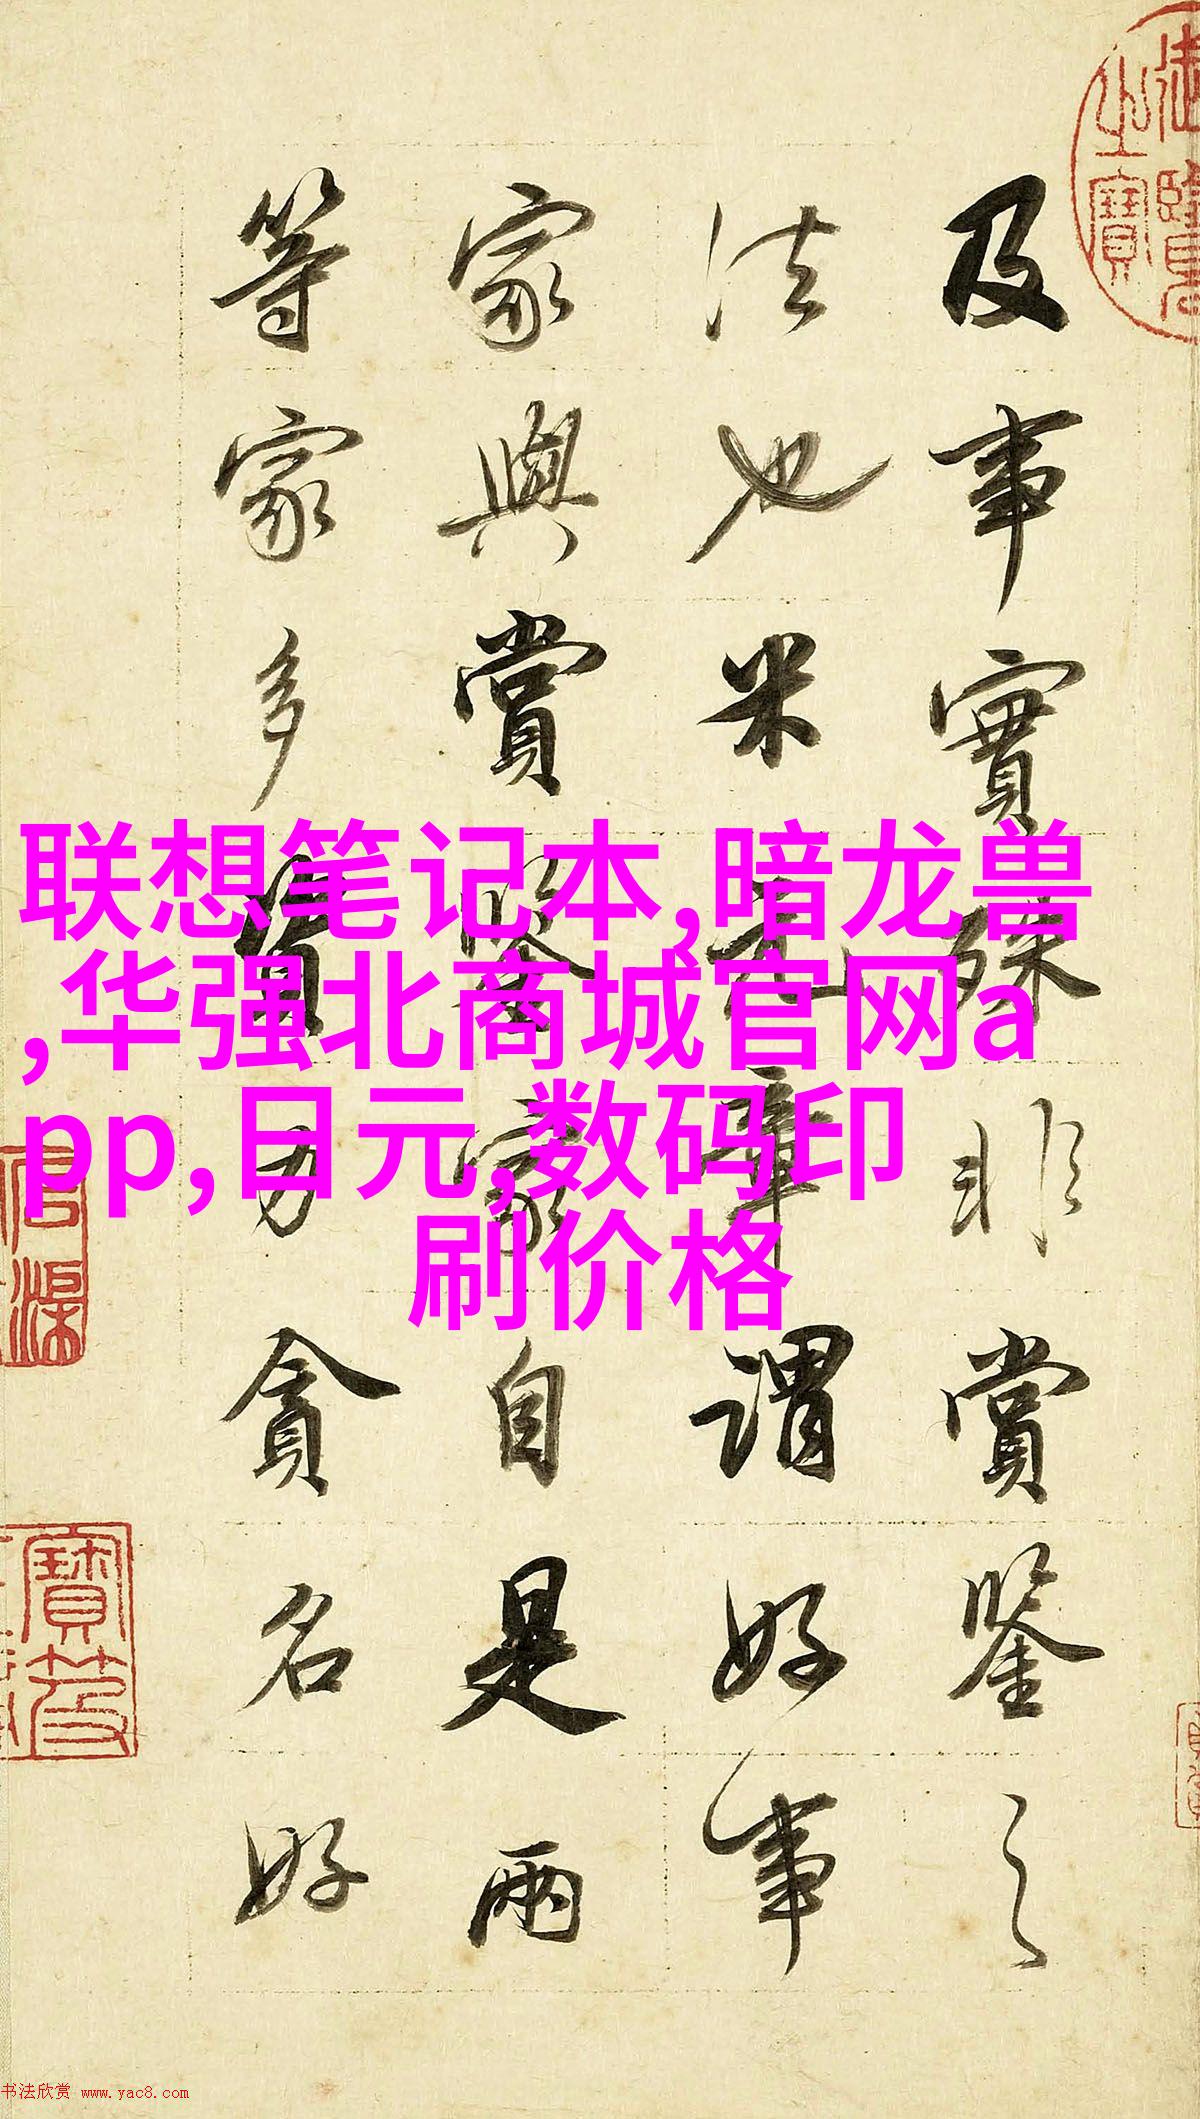 及事實殊非賞鑒之
法也米元章謂好事
家與賞鑒家自是兩
等家多資力貪名好
联想笔记本,暗龙兽
,华强北商城官网a
pp,日元,数码印
刷价格
御覽
之寶
寶笈
书法欣赏 www.yac8.com